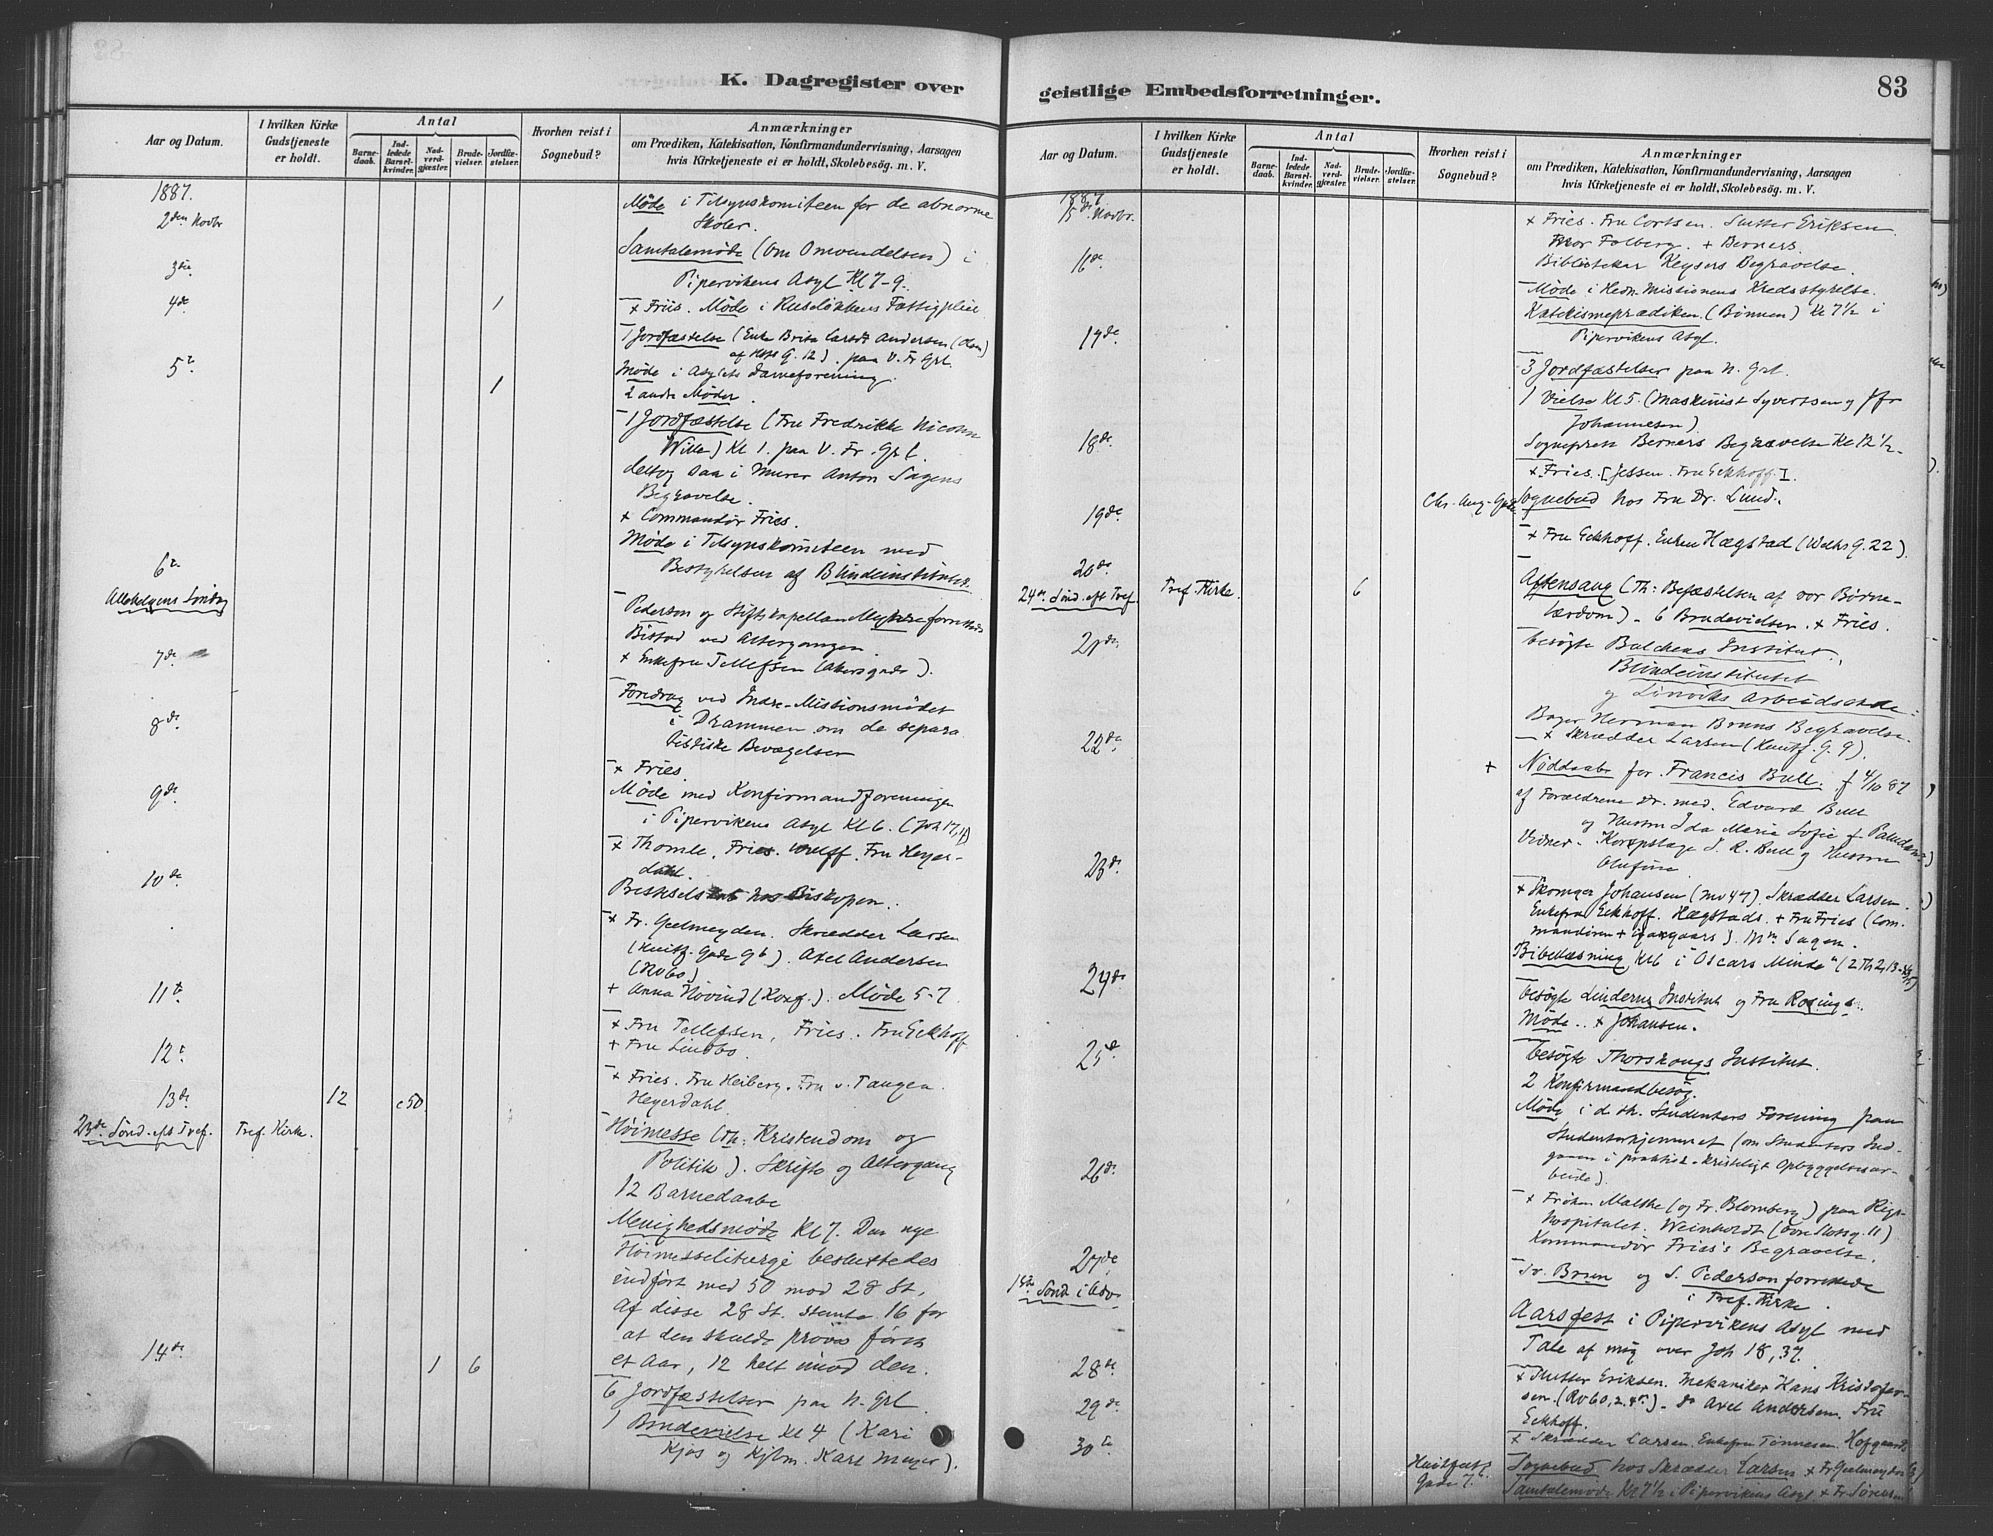 K. Dagregister over
Aar og Datum.
I hvilken Kirke Gudstjeneste er holdt.
Antal
Barne-daab.
Ind-ledede Barsel-kvinder.
Nad-verd-gjæster.
Brude-vielser.
Jordfæ-stelser.
Hvorhen reist i Sognebud?
Anmærkninger
om Prædiken, Katekisation, Konfirmandundervisning, Aarsagen
hvis Kirketjeneste ei er holdt, Skolebesøg. m. V.
1887.
2den Novbr
Møde i Tilsynskomiteen for de abnorme
Skoler.
3die
Samtalemøde (om Omvendelsen) i
Pipervikens Asyl Kl 7-9.
4de
1
+ Fries. Møde i Ruseløkkens Fattigpleie
1 Jordfæstelse (Enke Brita Larsdt Andersen
G. 12). paa V. Fr. Grl.
5te
1
Møde i Asylets Dameforening.
2 andre Møder.
1 Jordfæstelse (Fru Fredrikke Nicoline
Wille) Kl 1. paa V. Fr. Grl.
deltog saa i Murer Anton Sagens
Begravelse.
+ Commandør Fries.
Møde i Tilsynskomiteen med
Bestyrelsen af Blindeinstitutet.
6te
Allehelgens Søndag
Pederson og Stiftskapellan forrettede
Bistod ved Altergangen.
7de
+ Enkefru Tellefsen (Akersgade).
Foredrag ved Indre-Missionsmødet
i Drammen om de separa
tistiske Bevægelser
8de
+ Fries.
9de
Møde med Konfirmandforeningen
i Pipervikens Asyl Kl 6. (Joh 17,17)
+ Thomle. Fries. Wulff. Fru Heyer-
dahl.
10de
hos Biskopen.
+ Fr. Geelmeyden. Skrædder Larsen
(Huitf. Gade 9b). Axel Andersen
(Ro 60)
11te
+ Anna Hovind (Konf.). Møde 5-7
+ Fru Tellefsen, Fries. Fru Eckhoff
+ Fru Lindbo.
12te
+ Fries. Fru Heiberg. Fru v. Tangen.
Heyerdahl.
13de
12
c 50
23de Sønd. eft Tref.
Tref. Kirke.
Høimesse (Th: Kristendom og
Politik). Skrifte og Altergang
12 Barnedaabe
Menighedsmøde Kl 7. Den nye
Høimesseliturgi besluttedes
indført med 50 mod 28 St.
Af disse 28 St. stemte 16 for
at den skulde prøves først
et Aar, 12 helt imod den.
14de
1
6
6 Jordfæstelser paa N. Grl.
1 Brudevielse Kl 4 (Kari
Kjos og Kjbm. Karl Meyer).
geistlige Embedsforretninger.
83
Aar og Datum.
I hvilken Kirke Gudstjeneste er holdt.
Antal
Barne-daab.
Ind-ledede Barsel-kvinder.
Nad-verd-gjæster.
Brude-vielser.
Jordfæ-stelser.
Hvorhen reist i Sognebud?
Anmærkninger
om Prædiken, Katekisation, Konfirmandundervisning, Aarsagen
hvis Kirketjeneste ei er holdt, Skolebesøg. m. V.
1887
15de Novbr.
+ Fries. Fru Cortsen. Slutter Eriksen.
Folberg. + Berners.
16de
Bibliotekar Keysers Begravelse.
Møde i Hedn. Missionens Kredsstyrelse.
Katekismeprædiken (Bønnen) Kl 7 1/2 i
Pipervikens Asyl.
17de
3 Jordfæstelser paa N. Grl.
1 Vielse Kl 5. (Maskinist Syvertsen og Jfr
Johannesen)
18de
Sogneprest Berners Begravelse Kl 12 1/2
+ Fries. [Jessen. Fru Eckhoff].
19de
Chr. Aug. Gade
Sognebud hos Fru Dr. Lund.
+ Fru Eckhoff. Enken Hægstad (Welhs G. 22).
20de
24de Sønd. eft Tref.
Tref. Kirke.
6
Aftensang (Th: Befæstelsen af vor Børne-
lærdom). 6 Brudevielser. + Fries.
21de
besøgte Balchens Institut,
Blindeinstitutet
og Linviks
22de
Bager Herman Bruns Begravelse.
+ Skrædder Larsen (Huitf. G. 9).
+
Nøddaabe for Francis Bull. f 4/10 87
af Forældrene Dr. med. Edvard Bull
og Hustru Ida Marie Sofie f. Paludan
Vidner. Korpslæge J. R. Bull og Hustru
Olufine
23de
+ Skomager Johansen (Mv 47). Skrædder Larsen.
Enkefru Eckhoff. Hægstads. + Fru Fries (Com
mandøren + igaar). Sagen.
Bibellæsning Kl 6 i Oscars Minde (2 Th 2, 13-
24de
besøgte Linderns Institut og Fru Rosings.
Møde. + Johansen.
25de
besøgte Thorshaugs Institut.
2 Konfirmandbesøg.
Møde i d. Studenters Forening paa
Studenterhjemmet (om Studenters Ind-
i praktisk-kristeligt Opbyggelsesar-
beide).
26de
+ Frøken Malthe (og Fr. Blomberg) paa Rigs-
hospitalet. Weinholdt (øvre Slotsg. 11)
Kommandør Fries's Begravelse.
27de
1ste Sønd. i Adv.
Brun og S. Pederson forrettede
i Tref. Kirke.
Aarsfest i Pipervikens Asyl med
Tale af mig over Joh 18, 37.
28de
+ Slutter Eriksen. Mekaniker Hans Kristofer-
sen. (Ro 60, 2.). Axel Andersen. Fru
29de
Eckhoff.
+ Skrædder Larsen. Enkefru Tønnesen. Hofgaard
30te
Huitfeldts Gade 7.
Sognebud hos Skrædder Larsen + Fr Geelmeyden
Samtalemøde Kl 7 1/2 i Pipervikens Asyl. + Fr